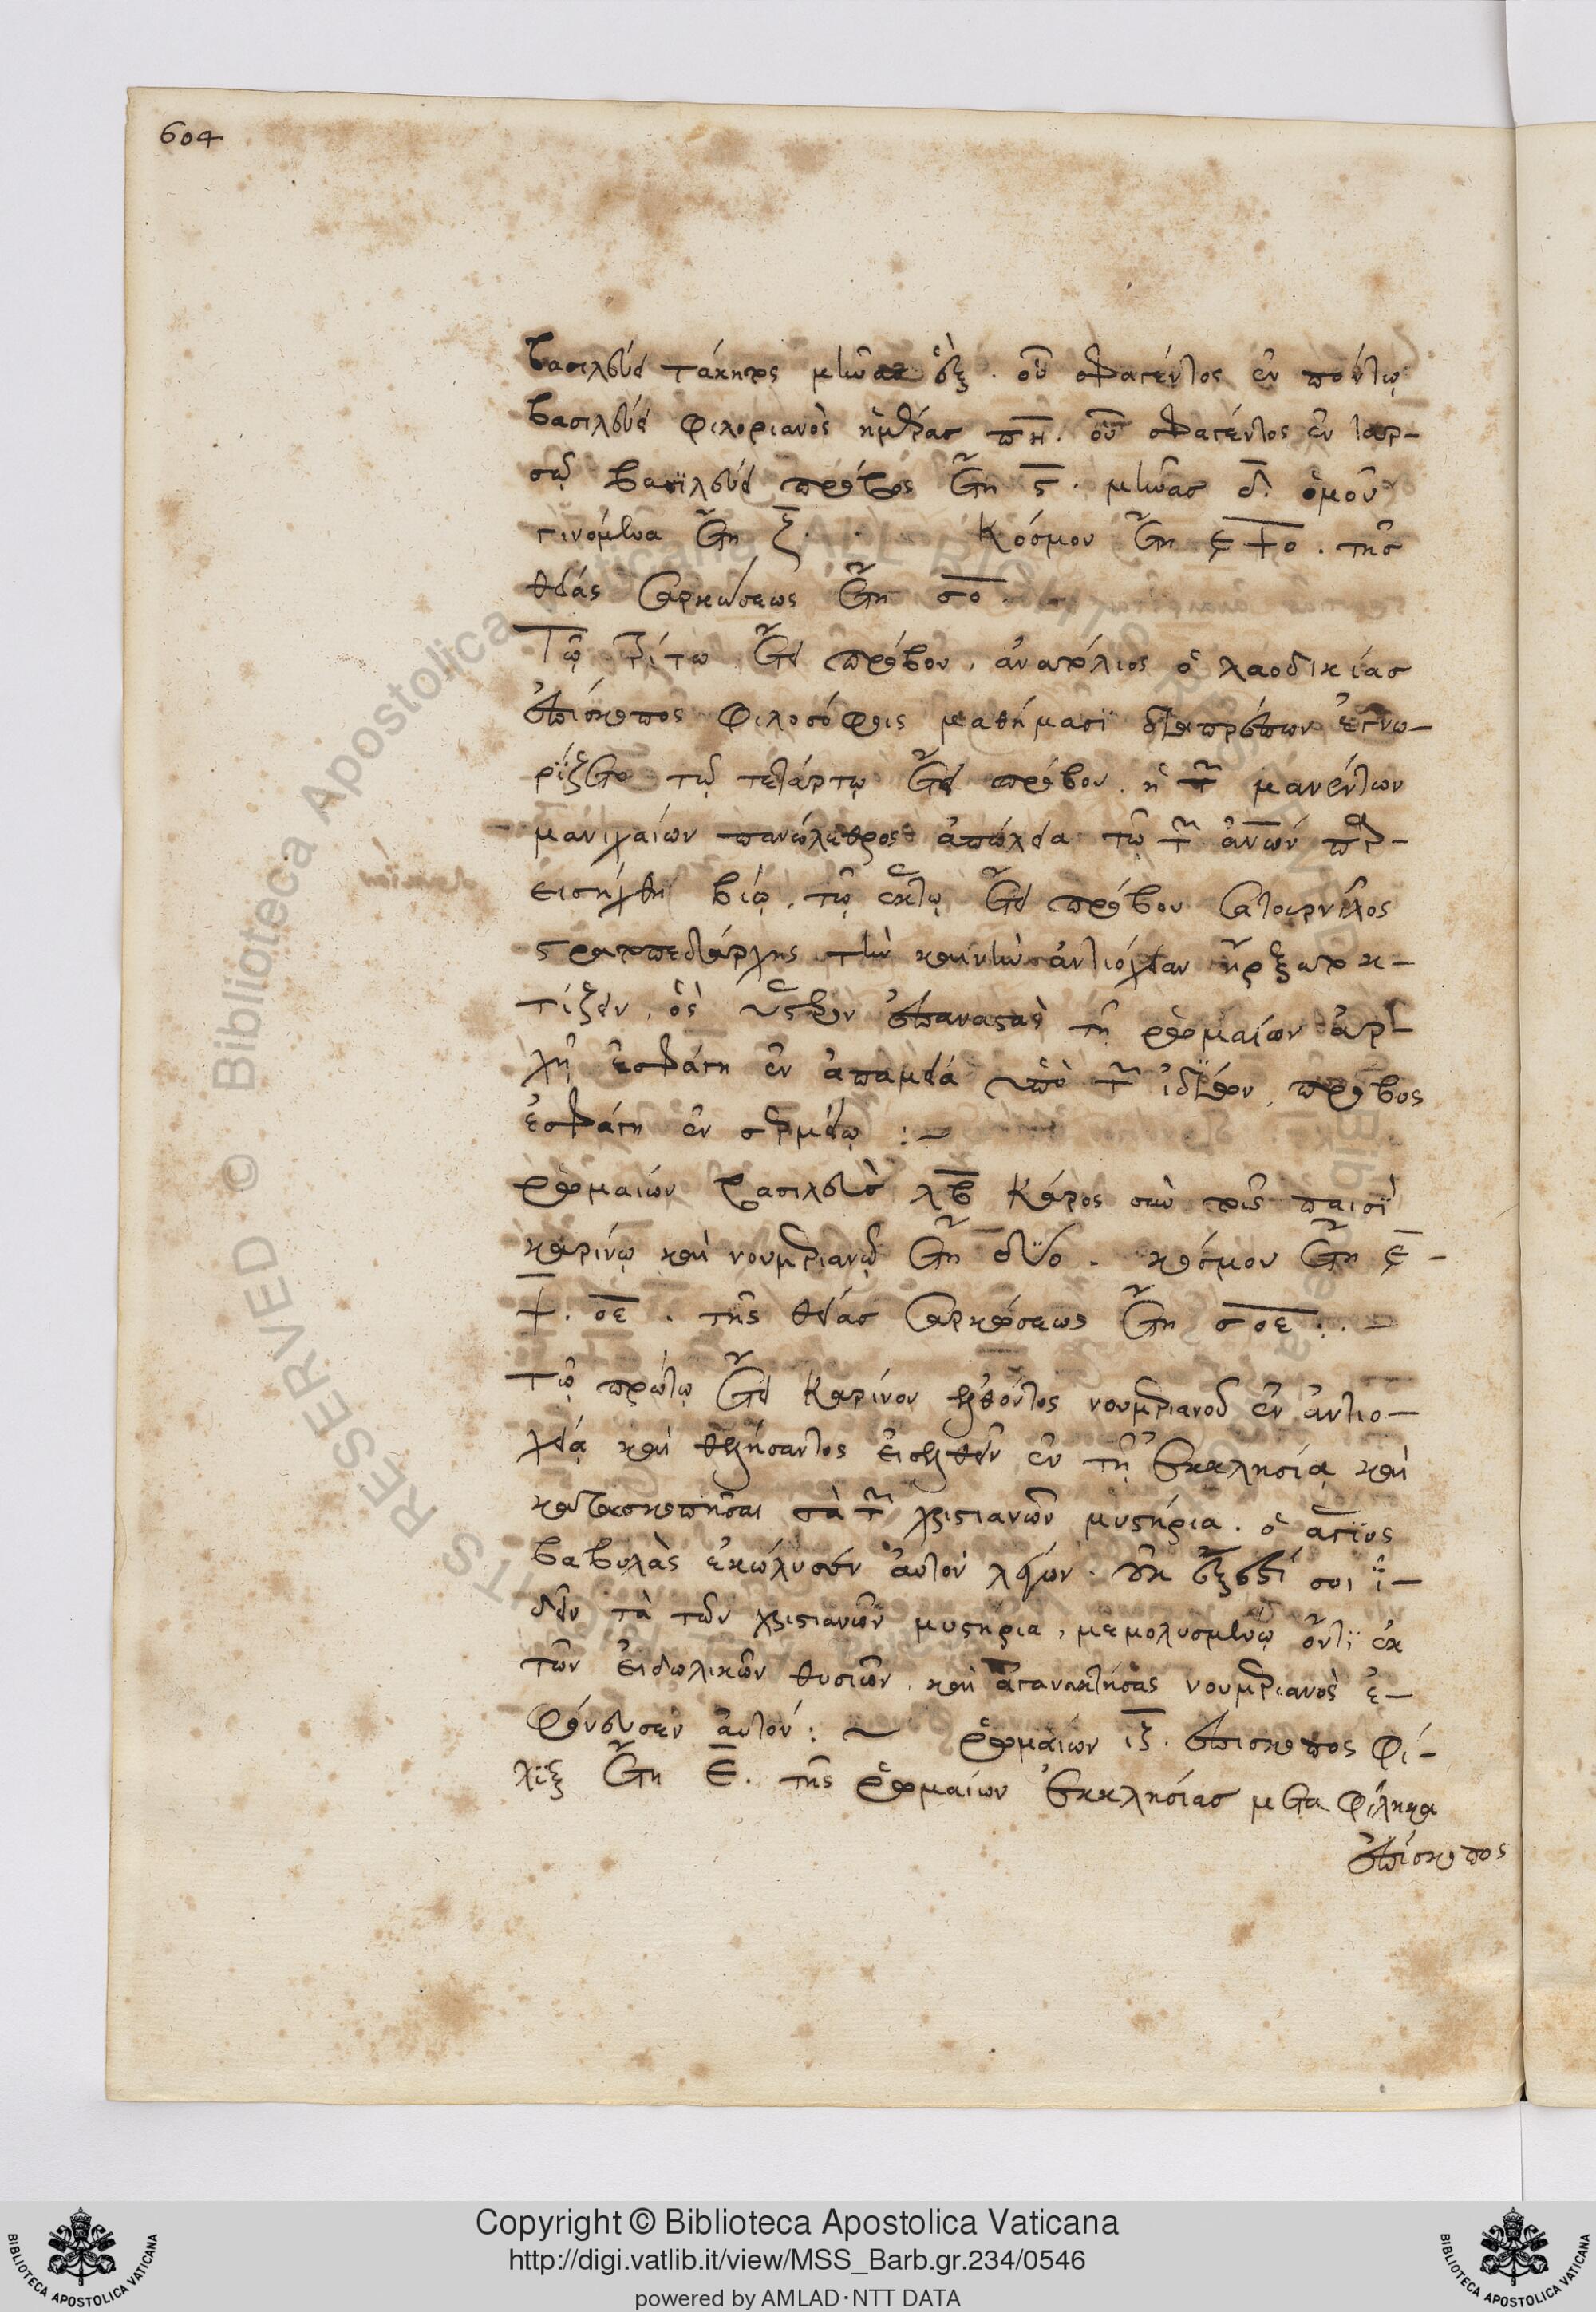 604
βασιλεύει τάκητος μῆνας ἓξ. οὗ σφαγέντος ἐν πόντω
βασιλεύει φλοριανὸς ἡμέρας π̅η̅. οὗ σφαγέντος ἐν ταρ-
σῶ βασιλεύει πρόβος ἔτη ς̅. μῆνας δ̅. ὁμοῦ
γινόμενα ἔτη ζ̅. Κόσμου ἔτη ε̅ψ̅ο̅. τῆς
θείας σαρκώσεως ἔτη σ̅ο̅
Τῶ τρίτω ἔτει πρόβου, ἀνατόλιος ὁ λαοδικίας
ἐπίσκοπος φιλοσόφοις μαθήμασι διαπρέπων ἐγνω-
ρίζετο τῶ τετάρτω ἔτει πρόβου. ἡ τῶν μανέντων
μανιχαίων πανώλεθρος ἀπώλεια τῶ τῶν ἀν̅ων παρ-
εισήχθη βίω. τῶ ἕκτω ἔτει πρόβου σατορνῖλος
στρατοπεδάρχης τὴν καινὴν ἀντιόχειαν ἤρξατο κ-
τίζειν, ὃς ὕστερον ἐπαναστὰς τῆ ῥωμαίων ἀρ-
χῆ ἐσφάγη ἐν ἀπαμεία ὑπὸ τῶν ἰδίων, πρόβος
ἐσφάγη ἐν σερμείω :-
ῥωμαίων βασιλεὺς λ̅β̅ Κάρος σὺν τοῖς παισὶ
καρίνω καὶ νουμεριανῶ ἔτη δύο. κόσμου ἔτη ε̅-
ψ̅. ο̅ε̅. τῆς θείας σαρκώσεως ἔτη σ̅ο̅ε̅.. -
Τῶ πρώτω ἔτει Καρίνου ἐλθόντος νουμεριανοῦ ἐν ἀντιο-
χεία καὶ θελήσαντος εἰσελθεῖν ἐν τῆ ἐκκλησία καὶ
κατασκοπῆσαι τὰ τῶν χριστιανῶν μυστήρια. ὁ ἅγιος
βαβυλὰς ἐκώλυσεν αὐτὸν λέγων. οὐκ ἔξεστί σοι ἰ-
δεῖν τὰ τῶν χριστιανῶν μυστήρια, μεμολυσμένω ὄντι ἐκ
τῶν εἰδωλικῶν θυσιῶν, καὶ ἀγανακτήσας νουμεριανὸς ἐ-
φόνευσεν αὐτόν: ~ ῥωμαίων ι̅ζ̅. ἐπισκοπος φί-
λιξ ἔτη ε̅. τῆς ῥωμαίων ἐκκλησίας μετα φίληκα
ἐπίσκοπος
Copyright © Biblioteca Apostolica Vaticana
http://digi.vatlib.it/view/MSS_Barb.gr.234/0546
powered by AMLAD·NTT DATA